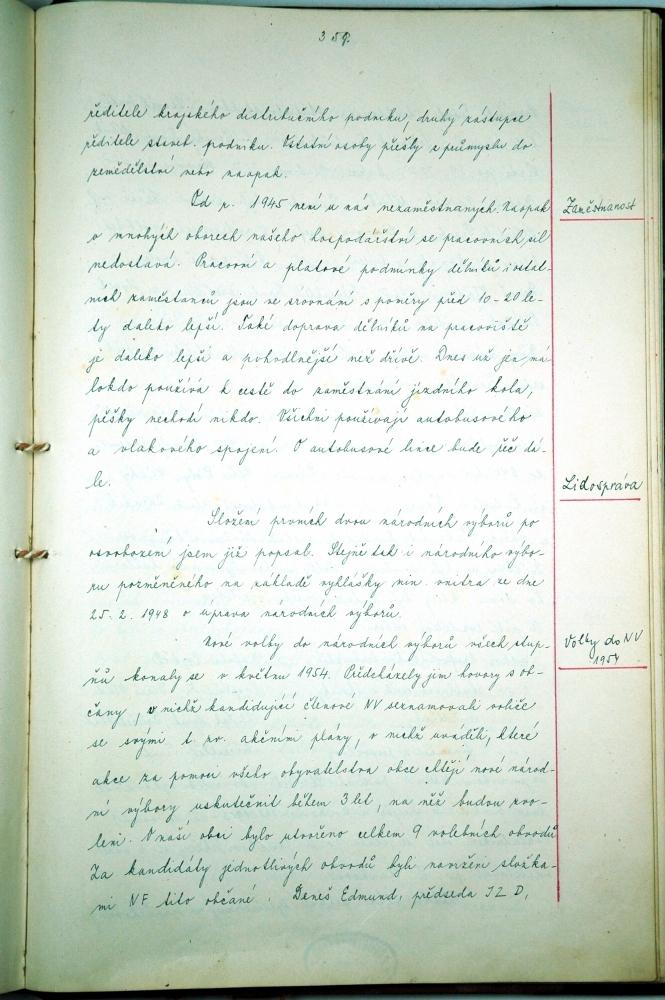 359.
ředitele krajského distribučního podniku, druhý zástupce
ředitele staveb. podniku. Ostatní osoby přešly z průmyslu do
zemědělství nebo naopak.
Od r. 1945 není u nás nezaměstnaných. Naopak
Zaměstnanost
v mnohých oborech našeho hospodářství se pracovních sil
nedostává. Pracovní a platové podmínky dělníků i ostat-
ních zaměstanců jsou ve srovnání s poměry před 10-20 le-
ty daleko lepší. Také doprava dělníků na pracoviště
je daleko lepší a pohodlnější než dříve. Dnes už jen má-
lokdo používá k cestě do zaměstnání jízdního kola,
pěšky nechodí nikdo. Všichni používají autobusového
a vlakového spojení. O autobusové lince bude řeč dá-
le.
Lidospráva
Složení prvních dvou národních výborů po
osvobození jsem již popsal. Stejně tak i národního výbo-
ru pozměněného na základě vyhlášky min. vnitra ze dne
25. 2. 1948 o úpravě národních výborů.
Nové volby do národních výborů všech stup-
Volby do NV
1954
ňů konaly se v květnu 1954. Předcházely jim hovory s ob-
čany, v nichž kandidující členové NV seznamovali voliče
se svými t. zv. akčními plány, v nichž uváděli, které
akce za pomoci všeho obyvatelstva obce chtějí nové národ-
ní výbory uskutečnit během 3 let, na něž budou zvo-
leni. V naší obci bylo utvořeno celkem 9 volebních obvodů
Za kandidáty jednotlivých obvodů byli navrženi složka-
mi NF tito občané: Beneš Edmund, předseda JZD,